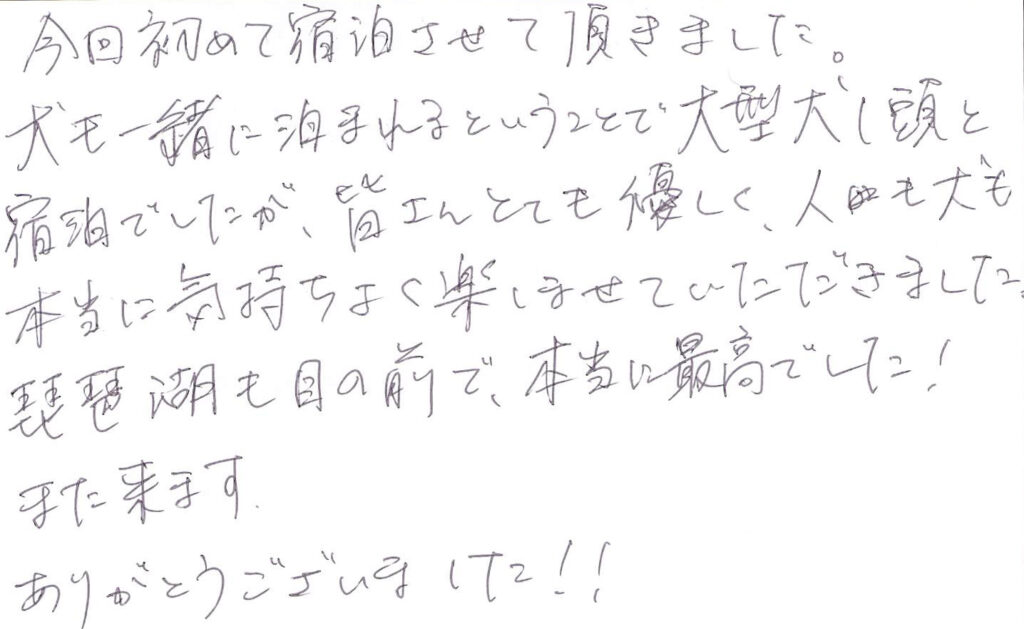 今回初めて宿泊させて頂きました。
犬も一緒に泊まれるということで大型犬1頭と
宿泊でしたが、皆さんとても優しく、人も犬も
本当に気持ちよく楽しませていただきました。
琵琶湖も目の前で、本当に最高でした!
また来ます.
ありがとうございました!!